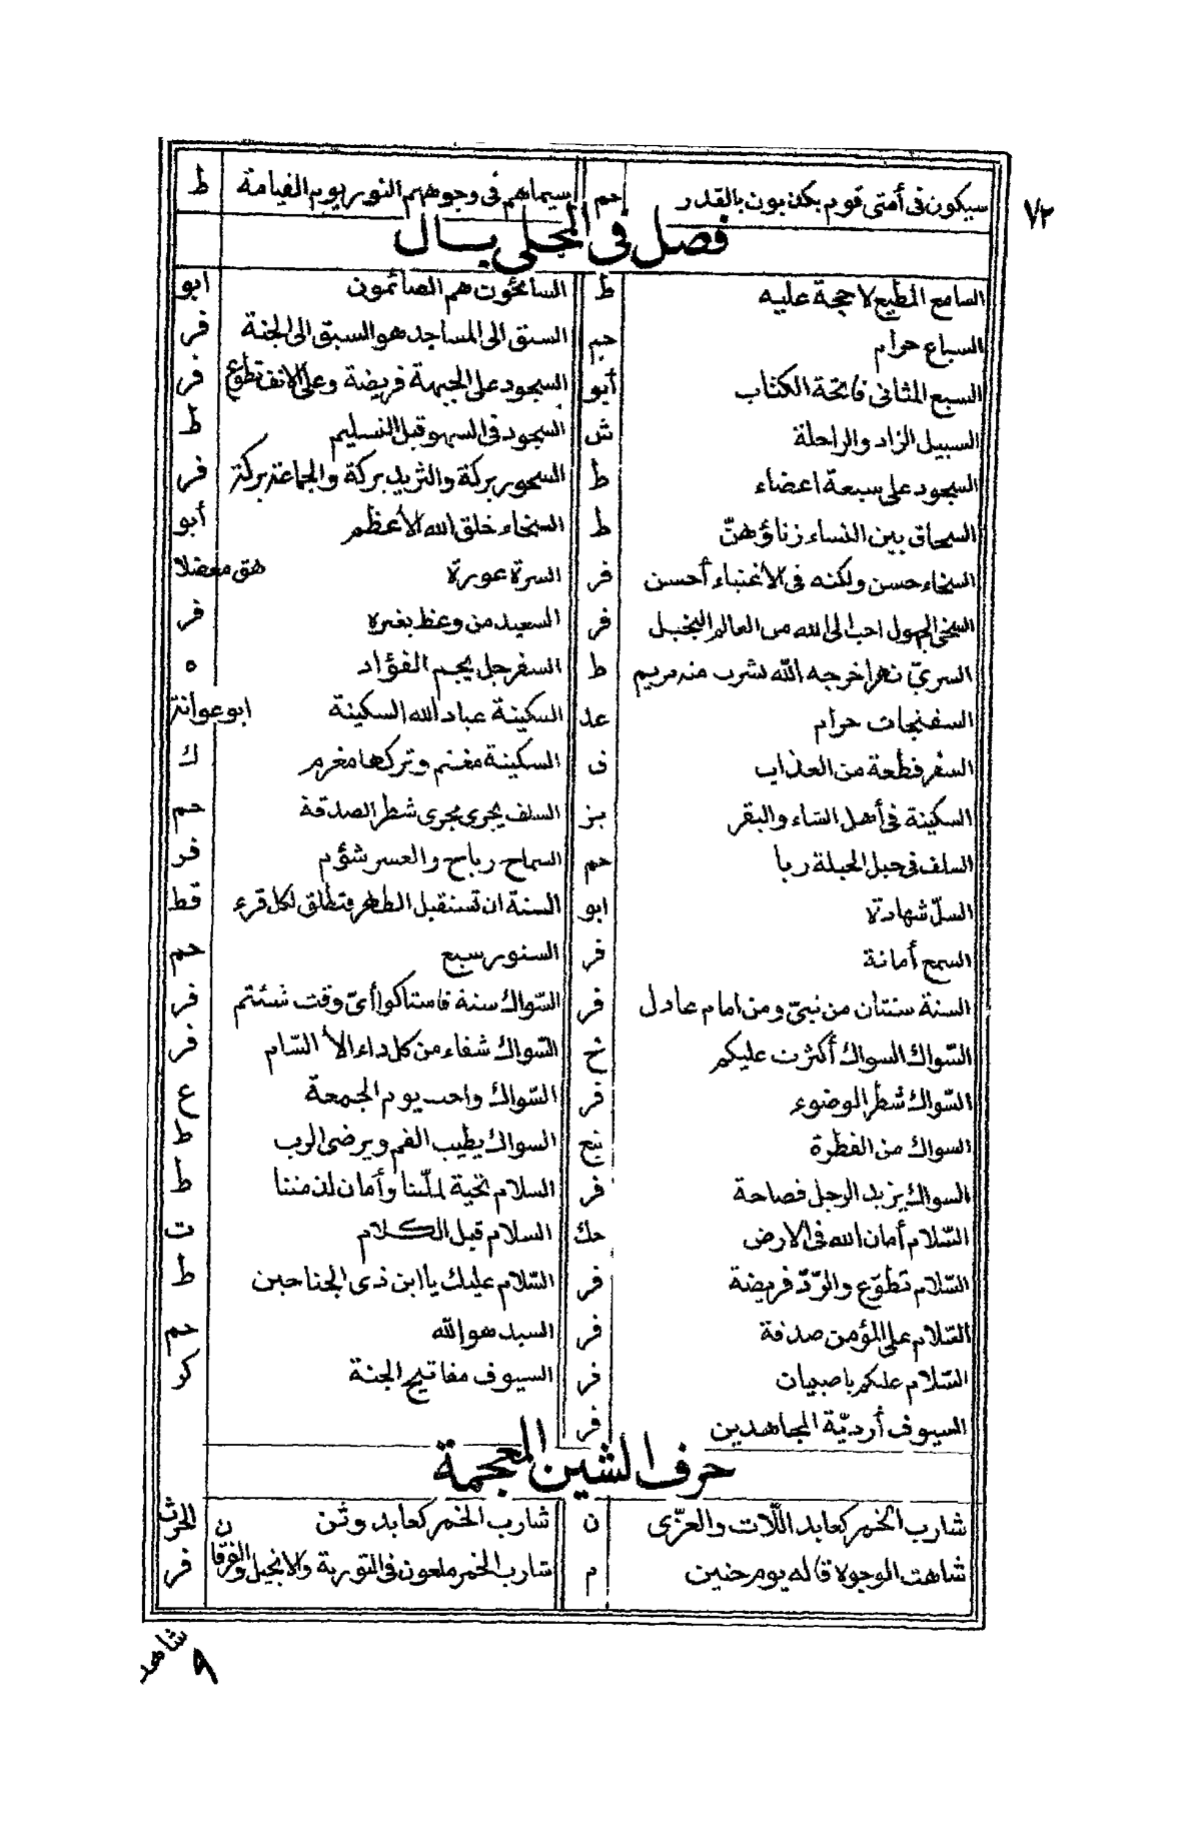 ٧٢
سيكون فى أمتى قوم يكذبون بالقدر حم سيماهم فى وجوههم النور يوم القيامة ط
فصل فى المحلى بــال
السامع المطيع لا حجة عليه ط السائحون هم الصائمون ابو
السباع حرام حم السبق الى المساجد هو السبق الى الجنة فر
السبع المثانى فاتحة الكتاب أبو السجود على الجبهة فريضة وعلى الانف تطوع فر
السبيل الزاد والراحلة ش السجود فى السهو قبل التسليم ط
السجود على سبعة اعضاء ط السحور بركة والثريد بركة والجماعة بركة فر
السحاق بين النساء زناؤهنّ ط السخاء خلق الله الأعظم أبو
السخاء حسن ولكنه فى الأغنياء أحسن فر السرة عورة هق معضلا
السخى الجهول احب الى الله من العالم البخيل فر السعيد من وعظ بغيره فر
السرىّ نهر اخرجه الله لشرب منه مريم ط السفرجل يجم الفؤاد ه
السفنجات حرام عد السكينة عباد الله السكينة ابو عوانة
السفر قطعة من العذاب ق السكينة مغنم وتركها مغرم ك
السكينة فى أهل الشاء والبقر بز السلف يجرى مجرى شطر الصدقة حم
السلف فى حبل الحبلة ربا حم السماح رباح والعسر شؤم فر
السلّ شهادة ابو السنة ان تستقبل الطهر فتطلق لكل قرء قط
السمع أمانة فر السنور سبع حم
السنة سنتان من نبىّ ومن امام عادل فر السّواك سنة فاستاكوا أىّ وقت شئتم فر
السّواك السواك أكثرت عليكم خ السّواك شفاء من كل داء الا السّام فر
السّواك شطر الوضوء فر السّواك واجب يوم الجمعة ع
السواك من الفطرة نع السواك يطيب الفم ويرضى الرب ط
السواك يزيد الرجل فصاحة فر السلام تحية لملّتنا وأمان لذمتنا ط
السّلام أمان الله فى الارض حك السلام قبل الكلام ت
السّلام تطوّع والردّ فريضة فر السّلام عليك يا ابن ذى الجناحين ط
السّلام على المؤمن صدقة فر السيد هو الله حم
السّلام عليكم يا صبيان فر السيوف مفاتيح الجنة كر
السيوف أرديّة المجاهدين فر
حرف الشين المعجمة
شارب الخمر كعابد اللّات والعزّى ن شارب الخمر كعابد وثن الحرث
شاهت الوجوه قاله يوم حنين م شارب الخمر ملعون فى التورية والانجيل والفرقان فر
شاهد
٩